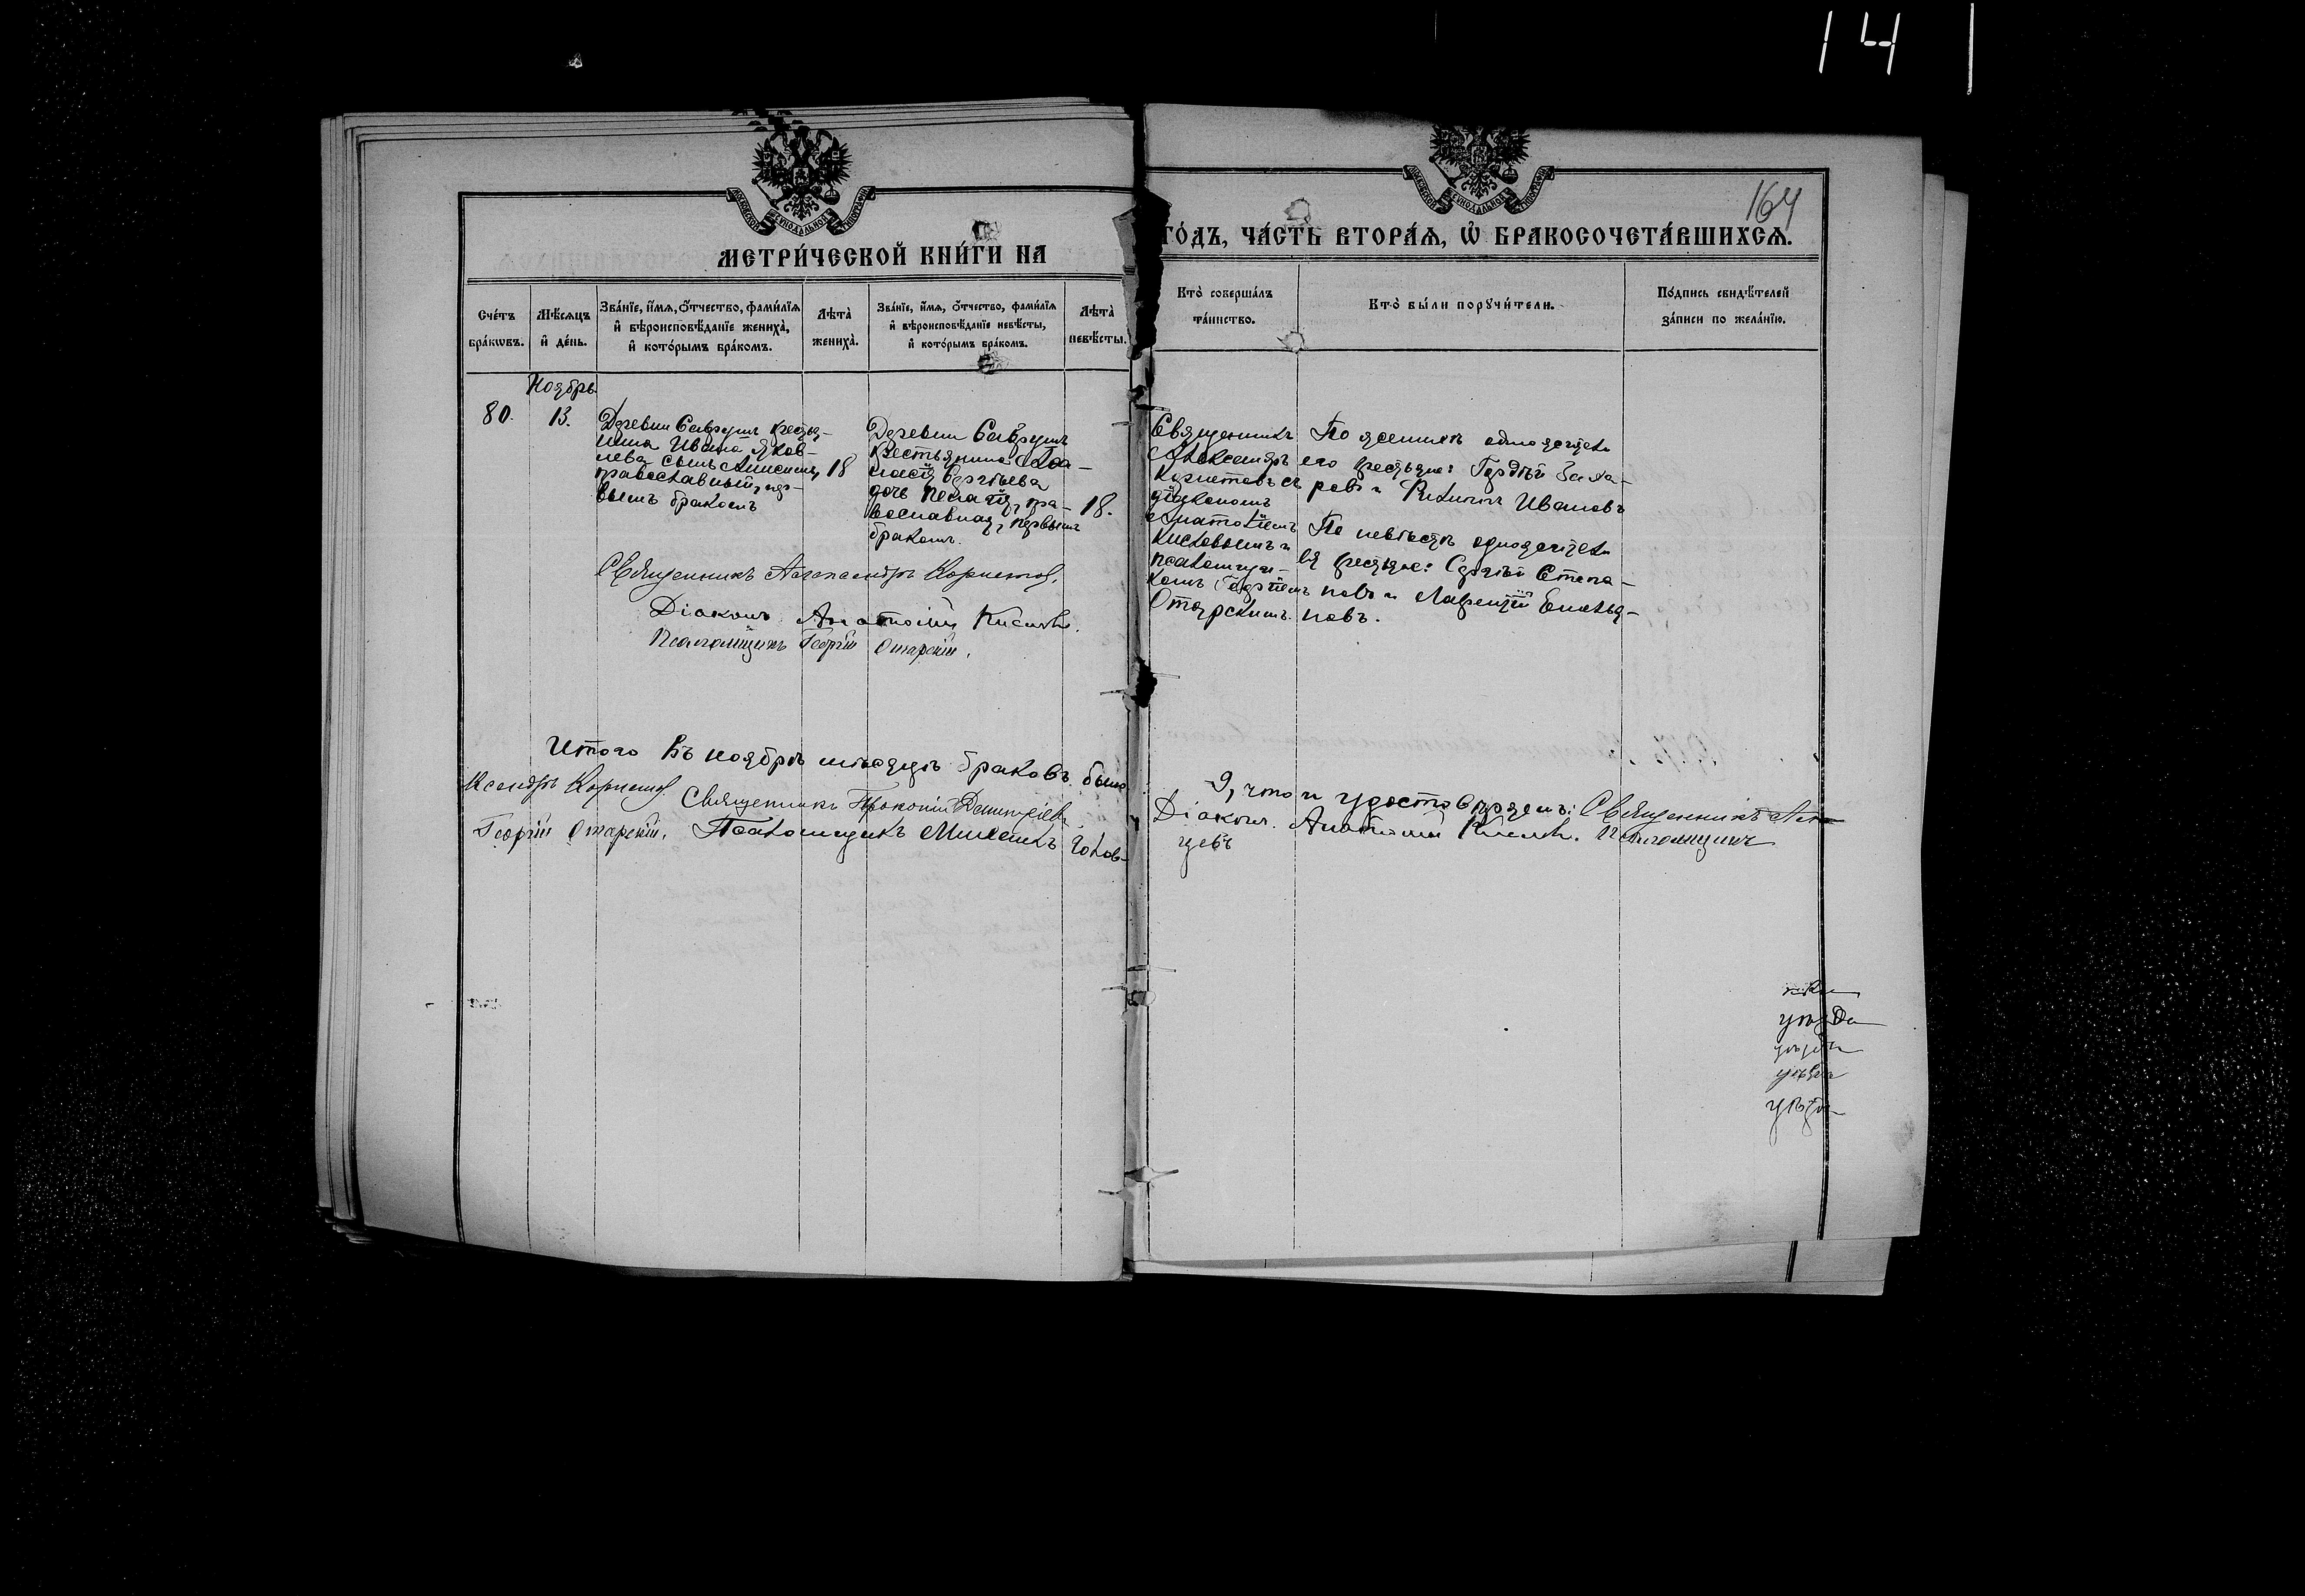 14
164
МОСКОВСКОЙ СѴНОДАЛЬНОЙ ТИПОГРАФІИ
МЕТРИ́ЧЕСКОЙ КНИ́ГИ НА
ГО́ДЪ, ЧА́СТЬ ВТОРА́Я, Ѡ БРАКОСОЧЕТА́ВШИХСЯ.
Сче́тъ бра́кѡвъ.
Мѣ́сяцъ и де́нь.
Зва́нїе, и́мя, ѻ́тчество, фами́лїя и вѣроисповѣ́данїе жениха̀, и кото́рымъ бра́комъ.
Лѣта̀ жениха̀.
Зва́нїе, и́мя, ѻ́тчество, фами́лїя и вѣроисповѣ́данїе невѣ́сты, и кото́рымъ бра́комъ.
Лѣта̀ невѣ́сты.
Кто̀ соверша́лъ та́инство.
Кто̀ бы́ли порꙋчи́тели.
По́дпись свидѣ́телей за́писи по жела́нїю.
Ноябрь
80.
13.
Деревни Саврушъ крестья-
нина Ивана Яков-
лева сынъ
православный, пер-
вымъ бракомъ
18
Деревни Саврушъ
Крестьянина
Сергѣева
дочь Пелагія, пра-
вославная, первымъ
бракомъ.
18.
Священникъ
Александръ
Корнетовъ съ
діакономъ
Анатоліемъ
Киселевымъ и
псаломщи-
комъ Георгіемъ
Отарскимъ.
По женихѣ однодеревен
его крестьяне: Гордѣй Заха-
ровъ и Филиппъ Ивановъ
По невѣстѣ однодеревен
ея крестьяне: Сергѣй Степа-
новъ и Лаврентій Емелья-
новъ.
Священникъ Александръ Корнетовъ.
Діаконъ Анатолій Киселевъ.
Псаломщикъ Георгій Отарскій.
Итого въ ноябрѣ мѣсяцѣ браковъ было
9, что и удостовѣряемъ: Священникъ Але-
ксандръ Корнетовъ. Священникъ Прокопій Димитріевъ.
Діаконъ Анатолій Киселевъ. Псаломщикъ
Георгій Отарскій. Псаломщикъ Михаилъ Голов-
цевъ
уѣзда
уѣзда
уѣзда
уѣзда